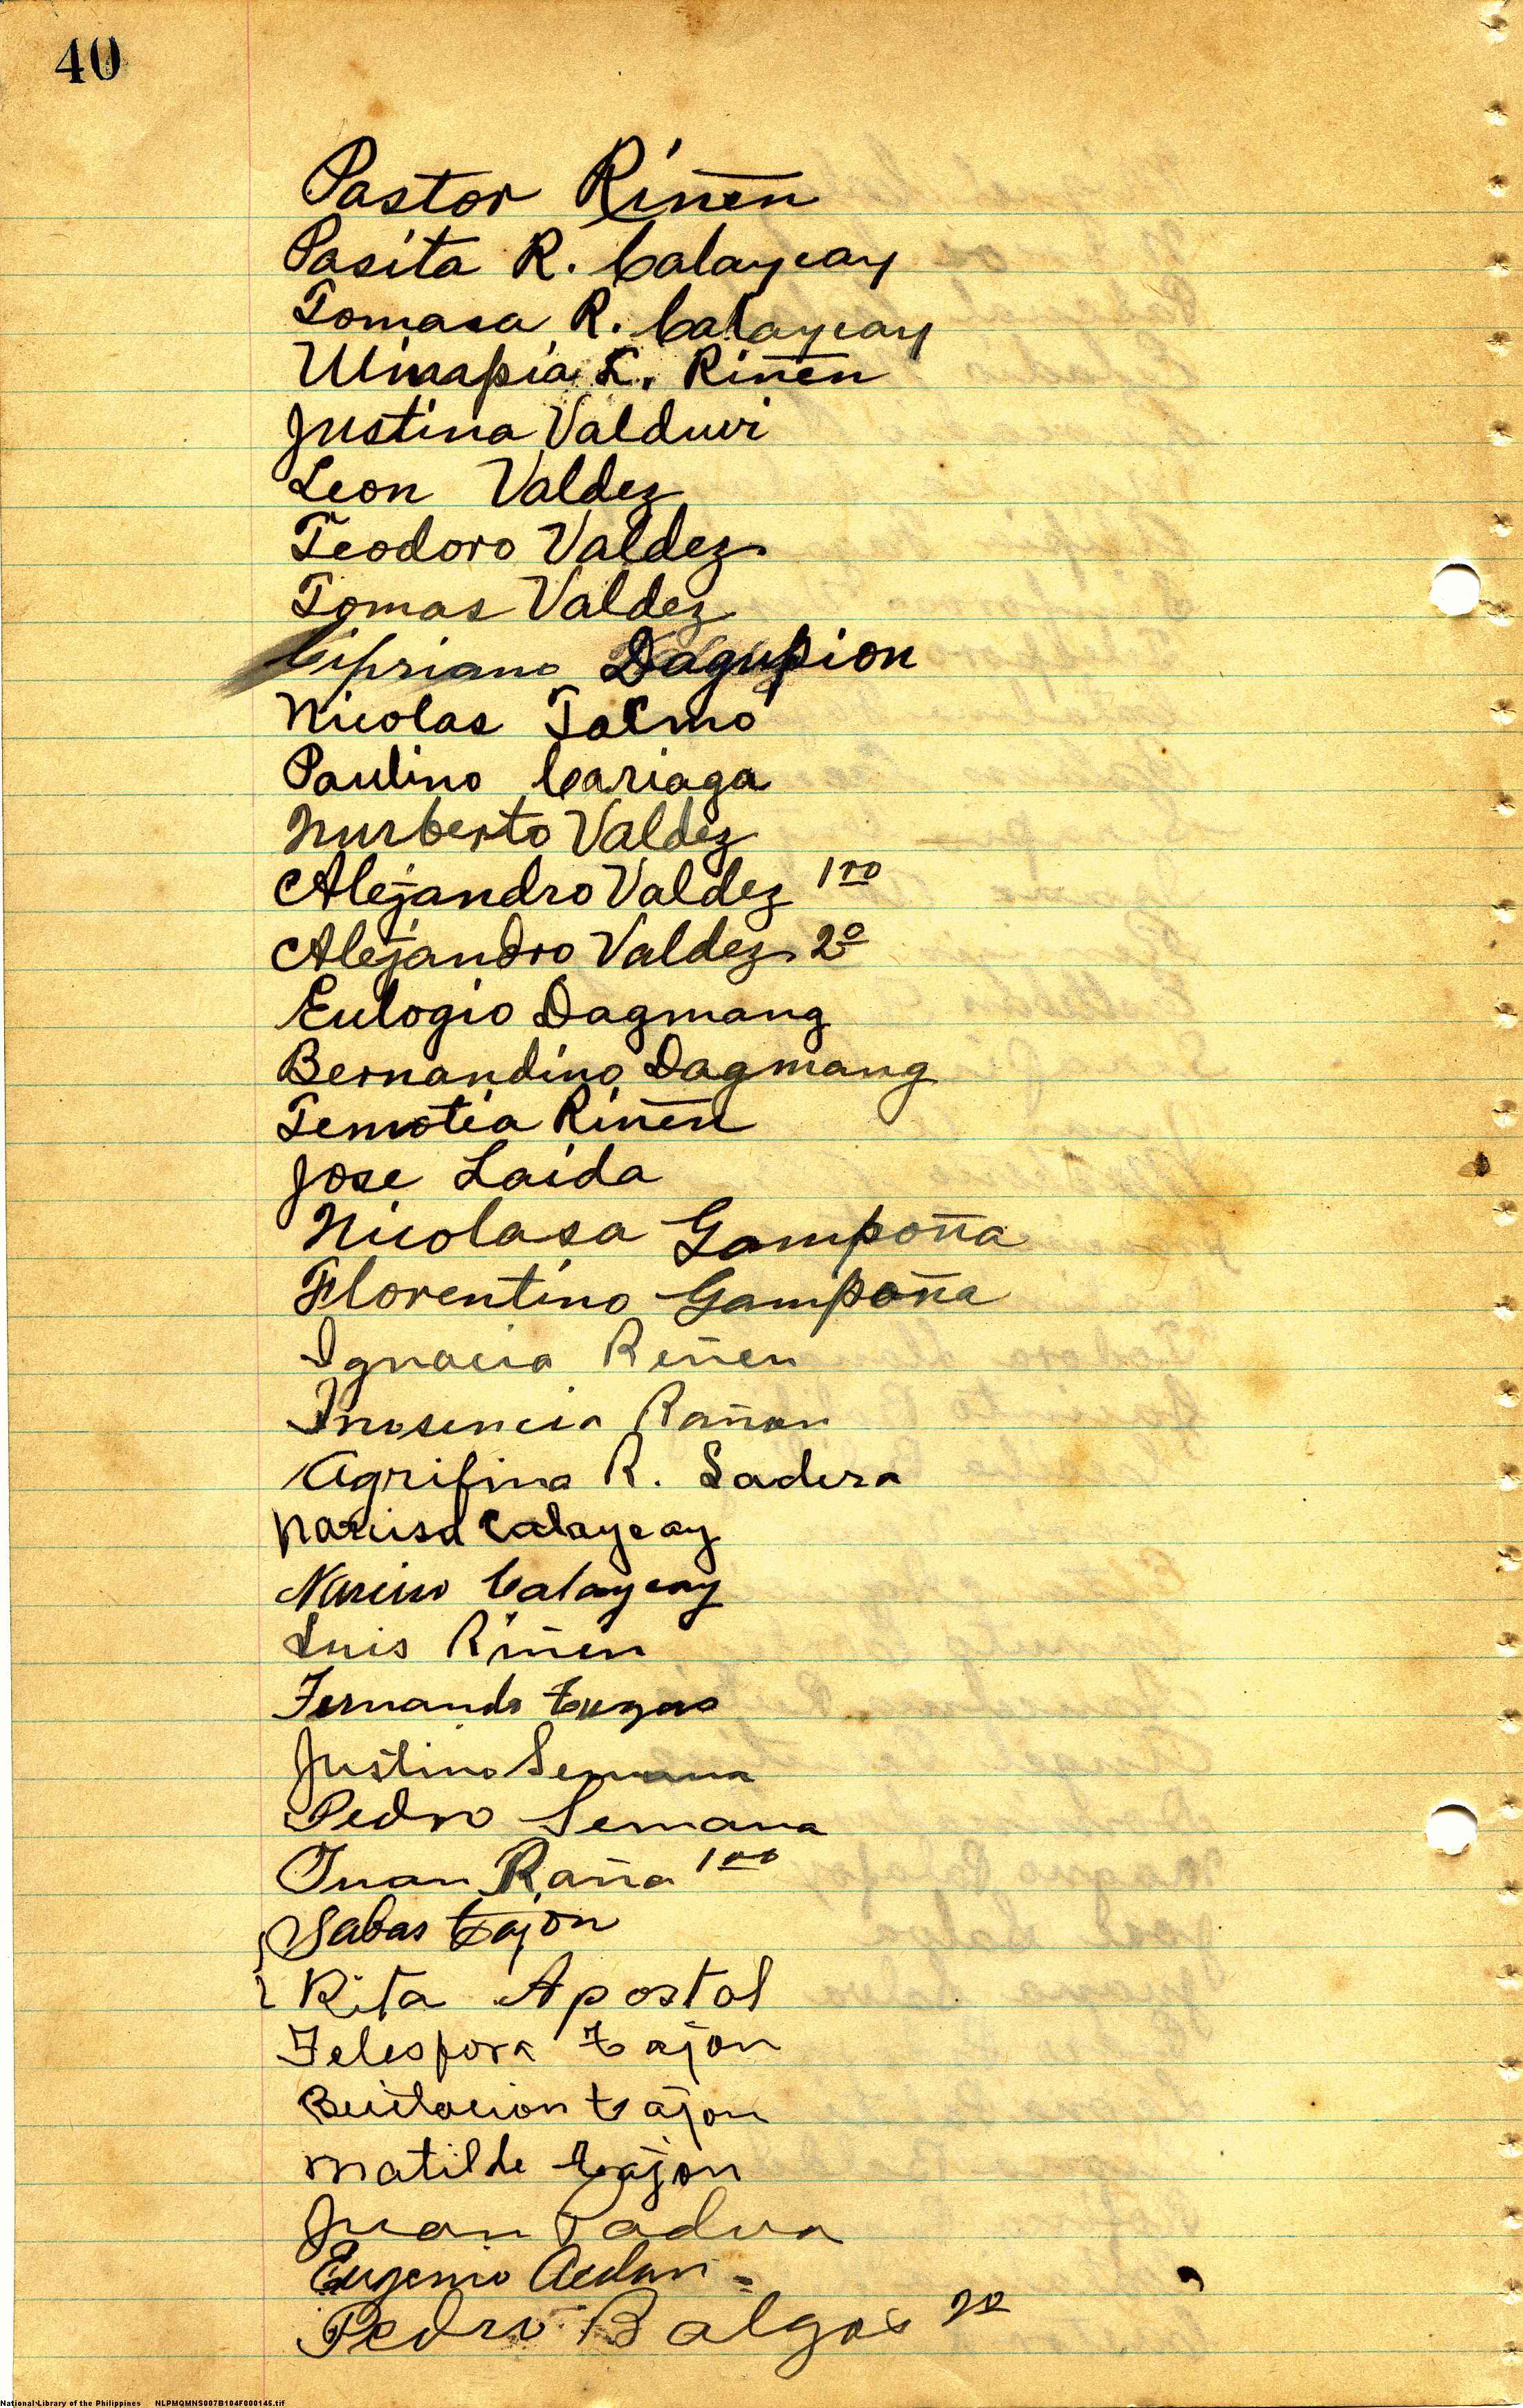 40
Pastor Riñen
Pasita R. Calaycay
Tomasa R. Calaycay
R. Riñen
Justina Valduvi
Leon Valdez
Teodoro Valdez
Tomas Valdez
Cipriano Dagupion
Nicolas Talmo
Paulino Cariaga
Nurberto Valdez
Alejandro Valdez 1ro
Alejandro Valdez 2º
Eulogio Dagmang
Bernandino Dagmang
Temotia Riñen
Jose Laida
Nicolasa Gampoña
Florentino Gampoña
Ignacia Reñen
Inosencia Rañon
Agrifina R. Sadera
Narcisa Calaycay
Calaycay
Luis Riñen
Fernando
Justino Semana
Pedro Semana
Juan Raña 1ro
Sabas Cajon
Rita Apostol
Telespora Cajon
Cajon
Matilde Cajon
Juan Padua
Eugenio
Pedro Balgos 2º
National Library of the Philippines NLPMQMNS007B104F000145.tif